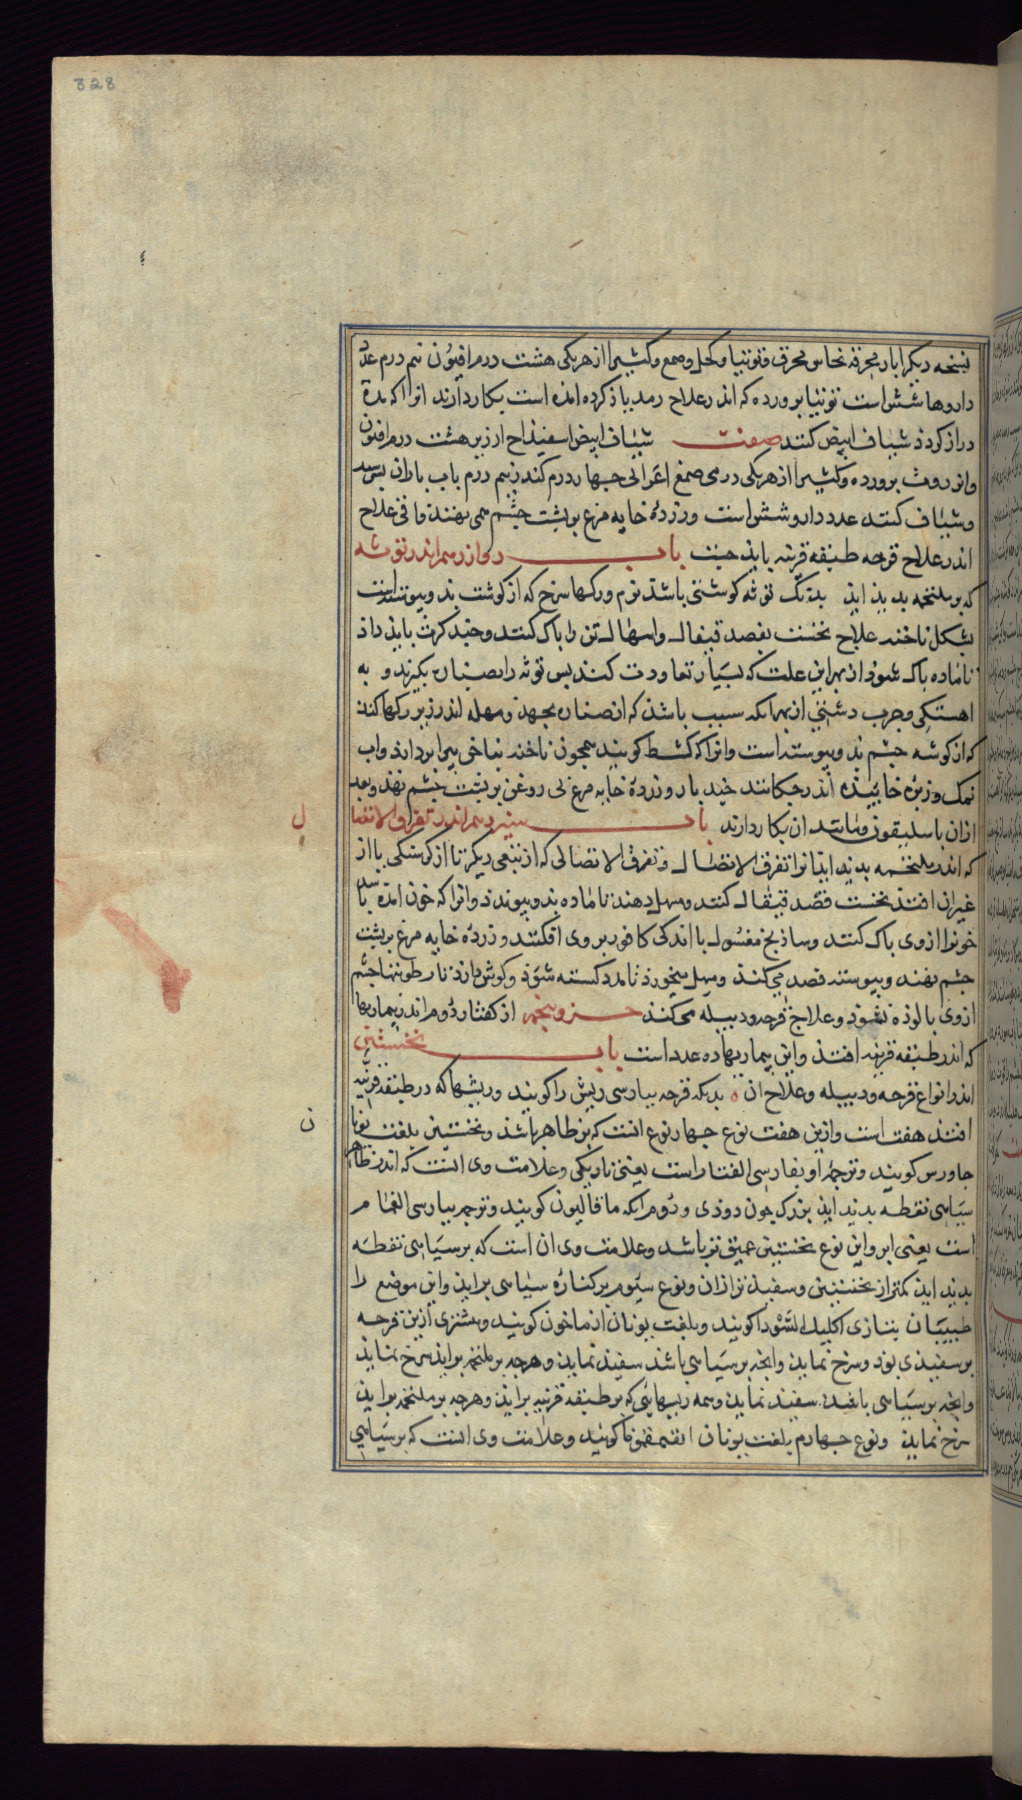 328
نسخه دیکر ابار محرقه نحاس محرق و توتیا و کحل و صمغ و کثیرا از هریکی هشت درم افیون نیم درم عدد
داروها شش است توتیا برورده که اندر علاج رمد یاذ کرده امده است بکار دارند انرا که مدة
دراز کردذ شیاف ابیض کنند صفت شیاف ابیض اسفیذاج ارزیز هشت درم افیون
وانزروت برورده وکثیرا از هریکی درمی صمغ اعرابی جهار درم کندر نیم درم باب باران بسرشند
وشیاف کنند عدد دارو شش است وزرده خایه مرغ بربشت جشم می نهند و باقی علاج
اندر علاج قرحه طبقه قرنیه یابذ جست باب دوازدهم اندر توثه
که بر ملتحمه بدیذ ایذ بدانک توثه کوشتی باشد نرم ورکها سرخ که از کوشت بد وبیوسته است
بشکل ناخنه علاج نخست بفصد قیفال واسهال تن را باک کنند وجند کرت بایذ داذ
تا ماده باک شوذ از بهر این علت که بسیار معاودت کند بس توثه را بصناره بکیرند و به
اهستکی وجرب دستی از بهر انکه سبب باشذ که از صناره بجهد ومهله اندر زیر رکها کند
که از کوشه جشم بد وبیوسته است وانرا که کشط کویند همجون ناخنه بناخن بیرا بردارد واب
نمک وزیره خاییذه اندر جکانند جند بار وزرده خایه مرغ بی روغن بربشت جشم نهند وبعد
ازان باسلیقون ومانند ان بکار دارند باب سیزدهم اندر تفرق الاتصال
که اندر ملتحمه بدید اید انرا تفرق الاتصال وتفرق الاتصالی که از تبغی دیکر تا از کرسنکی یا از
غیران افتد نخست فصد قیفال کنند ومسهل دهند تا ماده بد وبیوندد وانرا که خون امده باشد
خونرا ازوی باک کنند وساذنج مغسول با اندکی کافور بروی افکنند وزرده خایه مرغ بربشت
جشم نهند وبیوسته فصد می کنند ومسهل میخورد تا مدد کسسته شوذ وکوش دارند تا رطوبتها جشم
ازوی بالوذه نشوذ وعلاج قرحه ودبیله میکند جزو بنجم از کفتار دوم اندر بیماریها
که اندر طبقه قرنیه افتد واین بیماریها ده عدد است باب نخستین
اندر انواع قرحه ودبیله وعلاج ان بدانکه قرحه ببارسی ریش را کویند وریشها که در طبقه قرنیه
افتد هفت است وازین هفت نوع جهار نوع انست که بر ظاهر باشذ ونخستین بلغت یونان
جاورس کویند وترجمه او بفارسی القتار است یعنی تاریکی وعلامت وی انست که اندر ظاهر
سیاهی نقطه بدید ایذ بزرک جون دوذی ودوم انکه مافالیون کویند وترجمه ببارسی الغمام
است یعنی ابر واین نوع نخستین عمیق تر باشد وعلامت وی ان است که بر سیاهی نقطه
بدید ایذ کمتر از نخستین وسفیذ تر ازان ونوع سیوم بر کناره سیاهی براید واین موضع را
طبیبان بتازی اکلیل السواد کویند وبلغت یونان ازماخون کویند وبیشتری ازین قرحه
بر سفیدی بوذ وسرخ نماید وانجه بر سیاهی باشد سفید نماید وهرجه بر ملتحمه برایذ سرخ نماید
وانجه بر سیاهی باشد سفید نماید وهمه ریشهایی که بر طبقه قرنیه برایذ وهرجه بر ملتحمه برایذ
سرخ نماید ونوع جهارم بلغت یونان کویند وعلامت وی انست که بر سیاهی
ل
ن